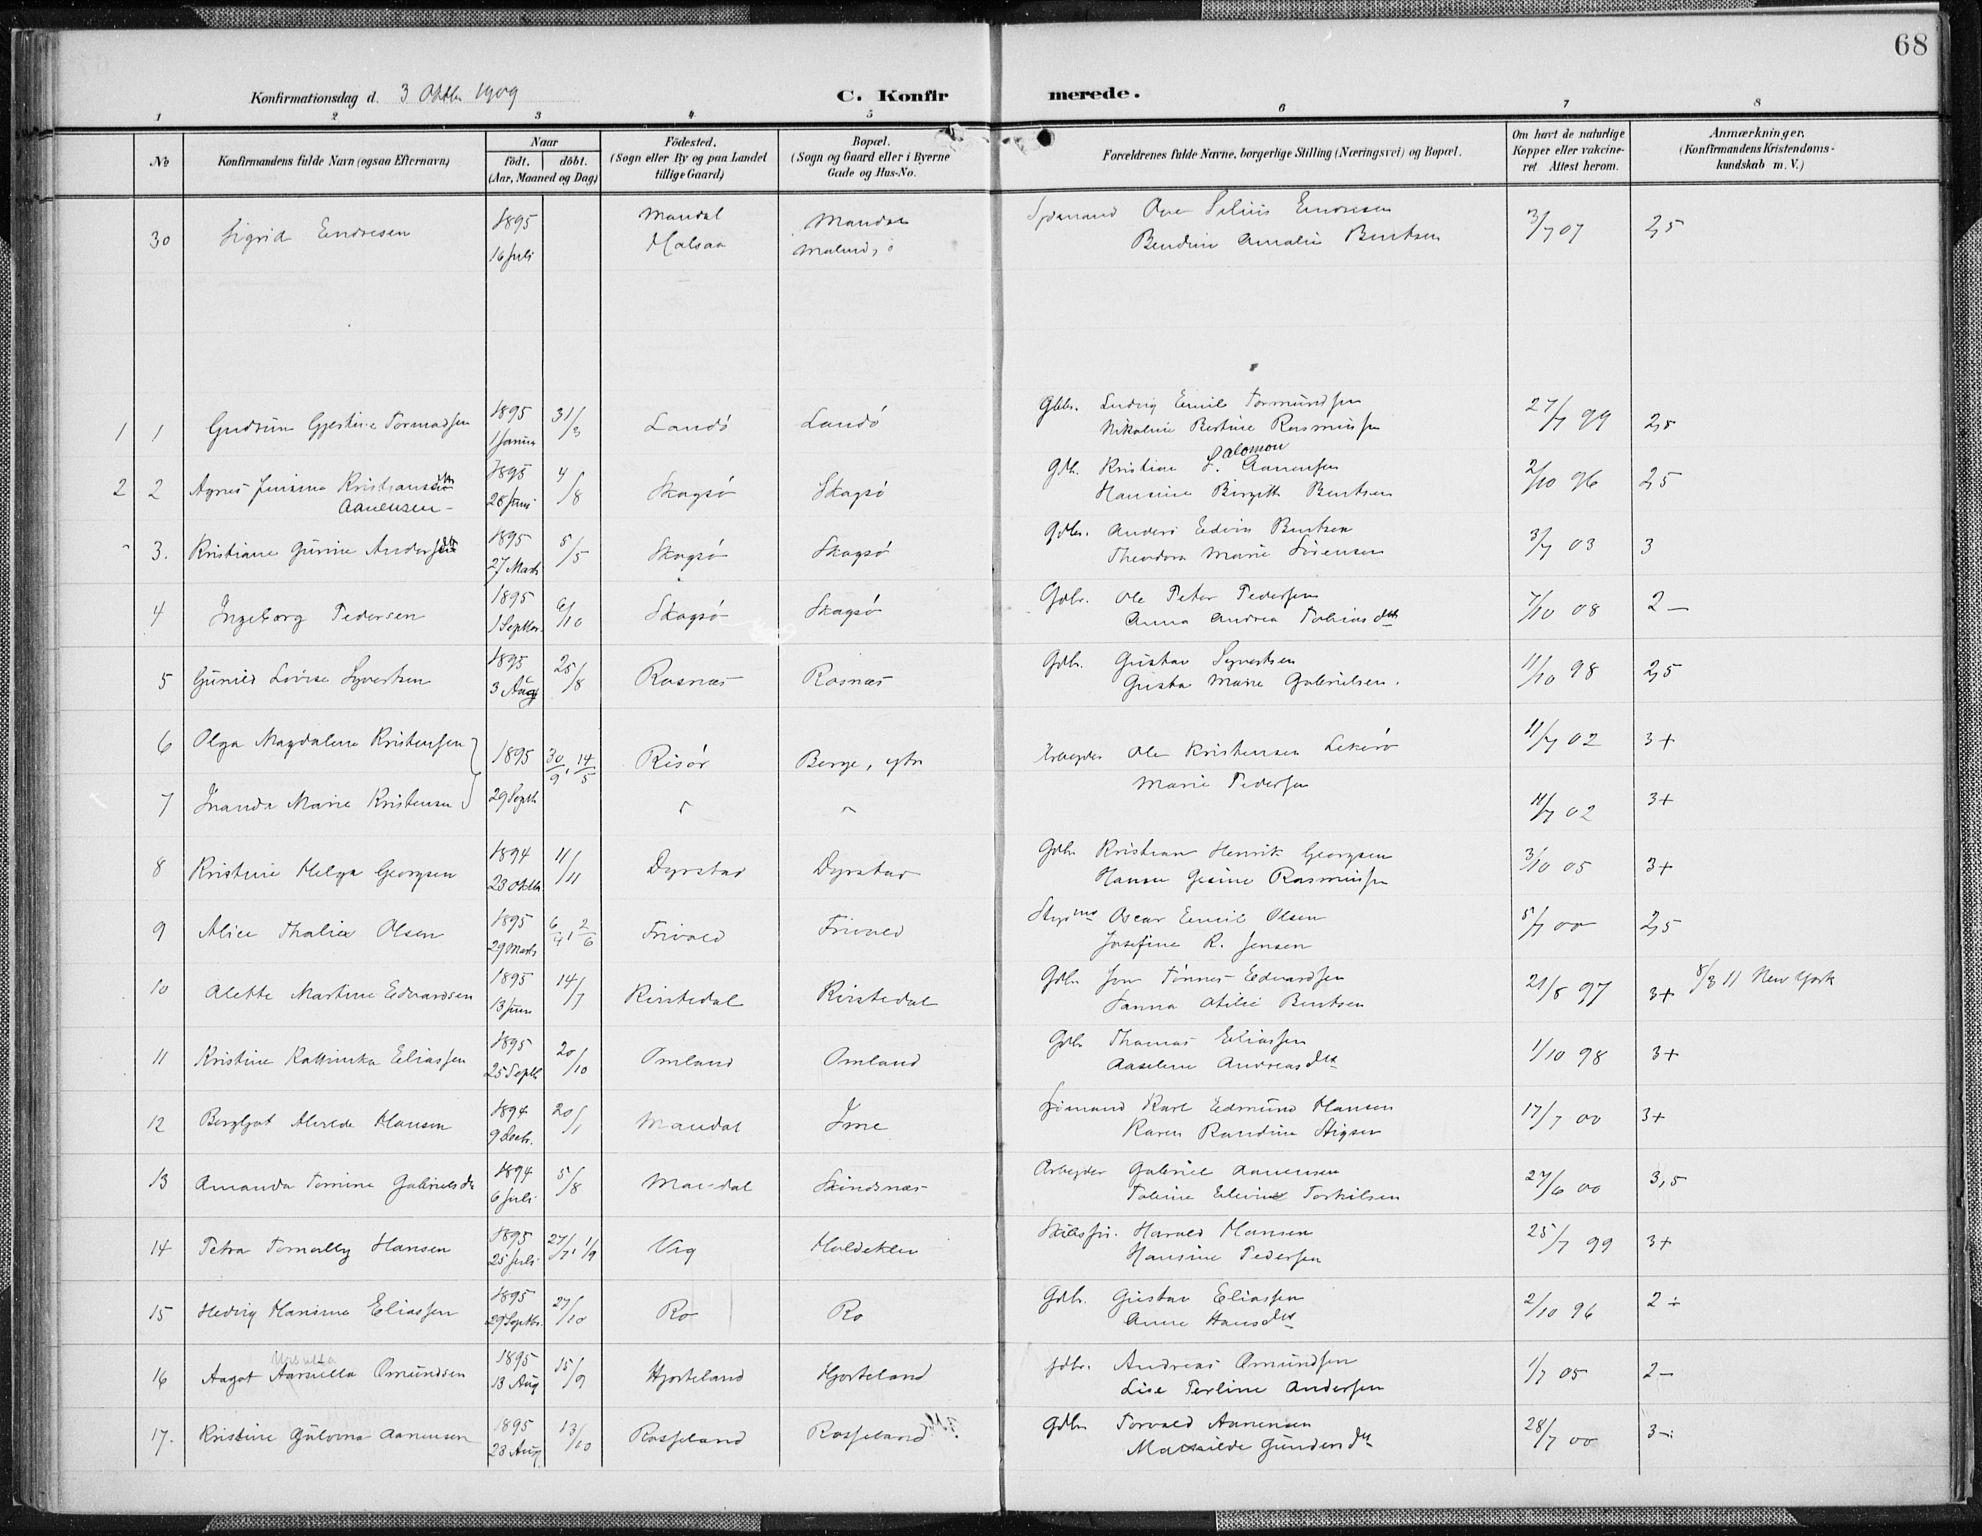 68
Konfirmationsdag d. 3 Oktbr 1909
C. Konfir merede.
1 2 3 4 5 6 7 8
No
Konfirmandens fulde Navn (ogsaa Efternavn)
Naar
födt. döbt.
(Aar, Maaned og Dag)
Födested.
(Sogn eller By og paa Landet
tillige Gaard)
Bopæl.
(Sogn og Gaard eller i Byerne
Gade og Hus-No.
Forældrenes fulde Navne, borgerlige Stilling (Næringsvei) og Bopæl.
Om havt de naturlige
Kopper eller vakcine-
ret Attest herom.
Anmærkninger.
(Konfirmandens Kristendoms-
kundskab m. V.)
30 Sigrid Endresen 1895 16 Juli Mandal Malsaa Mandal
Sjømand Ove Endresen 3/7 07 2,5
Bendine Amalie Bentsen
1 1 Gudrun Gjestine Tormodsen 1895 1 Januar 31/3 Landø Landø
Gbbr. Ludvig Emil Tormundsen 27/7 99 2,5
Nikoline Bertine Rasmussen
2 2 Agnes Jensine Kristians Aanensen 1895 28 Juni 4/8 Skogsø Skogsø
Gbr. Kristian S. Salomon Aanensen 2/10 96 2,5
Hansine Birgitte Bentsen
3. Kristiane Gurine Anders 1895 27 Marts 5/5 Skogsø Skogsø
Gdbr. Anders Edvin Bentsen 3/7 03 3
Theodora Marie Sørensen
4 Ingeborg Pedersen 1895 1 Septbr. 6/10 Skogsø Skogsø
Gdbr. Ole Peter Pedersen 7/10 08 2 –
Anna Andrea Tobiasdtr
5 Gunild Lovise Syvertsen 1895 3 Aug 25/8 Rosnæs Rosnæs
Gdb. Gustav Syvertsen 11/10 98 2,5
Gusta Marie Gabrielsen.
6 Olga Magdalene Kristensen 1895 30/9, 14/5 Risör Berge, ytr
Arbeyder Ole Kristensen 11/7 02 3+
Marie Pedersen
7 Inanda Marie Kristensen 29 Septb " "
11/7 02 3+
8 Kristine Helga Georgsen 1894 23 Oktbr 11/11 Dyrstad Dyrstad
Gdbr Kristian Henrik Georgsen 3/10 05 3+
Hanna Gesine Rasmussen
9 Alice Thalie Olsen 1895 29 Marts 6/4, 2/6 Frivold Frivold
Oscar Emil Olsen 5/7 00 2,5
Josefine R. Jensen
10 Alette Martine Edvardsen 1895 13 Juni 14/7 Kirstedal Kirstedal
Gdbr Jon Tønnes Edvardsen 21/8 97 3+ 8/3 11 New York
Janna Otilie Bentsen
11 Kristine Kathinka Eliassen 1895 25 Septb 20/10 Omland Omland
Gdbr Thomas Eliassen 1/10 98 3+
Aaseline Andreasdtr
12 Bergljot Alvilde Hansen 1894 9 Decbr. 20/1 Mandal Ime
Sjømand Karl Edmund Hansen 17/7 00 3+
Karen Randine Stigsen
13 Amanda Tomine Gabrielsdtr 1894 6 Juli 5/8 Mandal Skindsnæs
Arbeyder Gabriel Aanensen 27/6 00 3,5
Toline Elevine Torkilsen
14 Petra Tomally Hansen 1895 25 Juli 27/7, 1/9 Vig
Harald Hansen 25/7 99 3+
Hansine Pedersen
15 Hedvig Hansine Eliassen 1895 29 Septbr. 27/10 Ro Ro
Gdb. Gustav Eliassen 2/10 96 2 ÷
Anne Hansdtr
16 Aagot Aarsilla Omundsen 1895 13 Aug 15/9 Hjorteland Hjorteland
Gdbr. Andreas Omundsen 1/7 05 2 –
Lise Terline Andersen
17. Kristine Gulovna Aanensen 1895 23 Aug. 13/10 Rosseland Rosseland
Gdbr Torvald Aanensen 28/7 00 3 ÷
Mathilde Gundersdtr